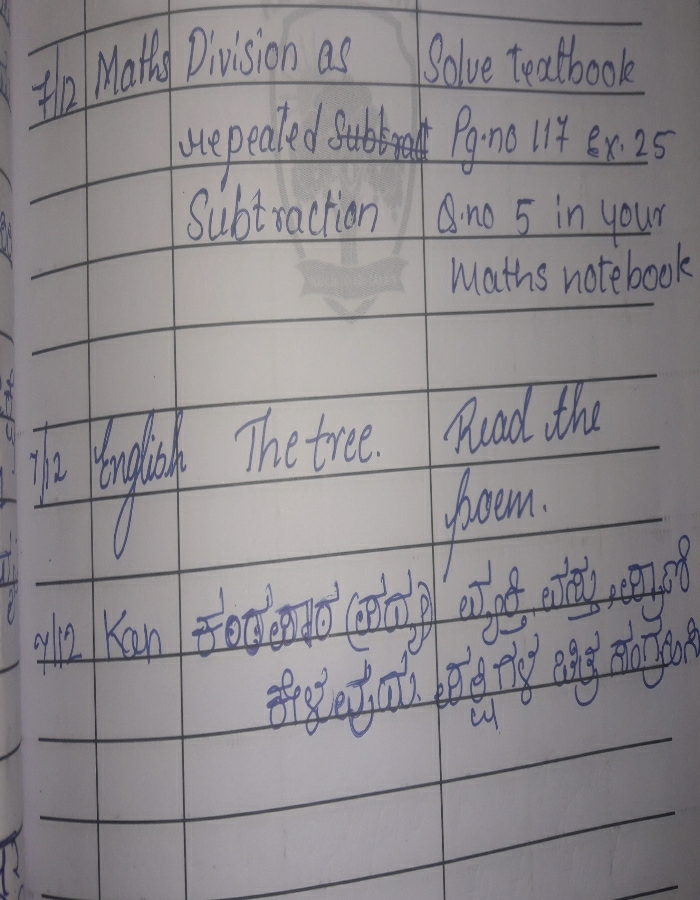 7/12 Maths Division as Solve textbook
repeated Subtract Pg.no 117 Ex. 25
Subtraction Q.no 5 in your
Maths notebook
7/12 English The tree. Read the
poem.
7/12 Kan ವ್ಯಕ್ತಿ, ವಸ್ತು, ಪ್ರಾಣಿ
ಪಕ್ಷಿಗಳ ಚಿತ್ರ